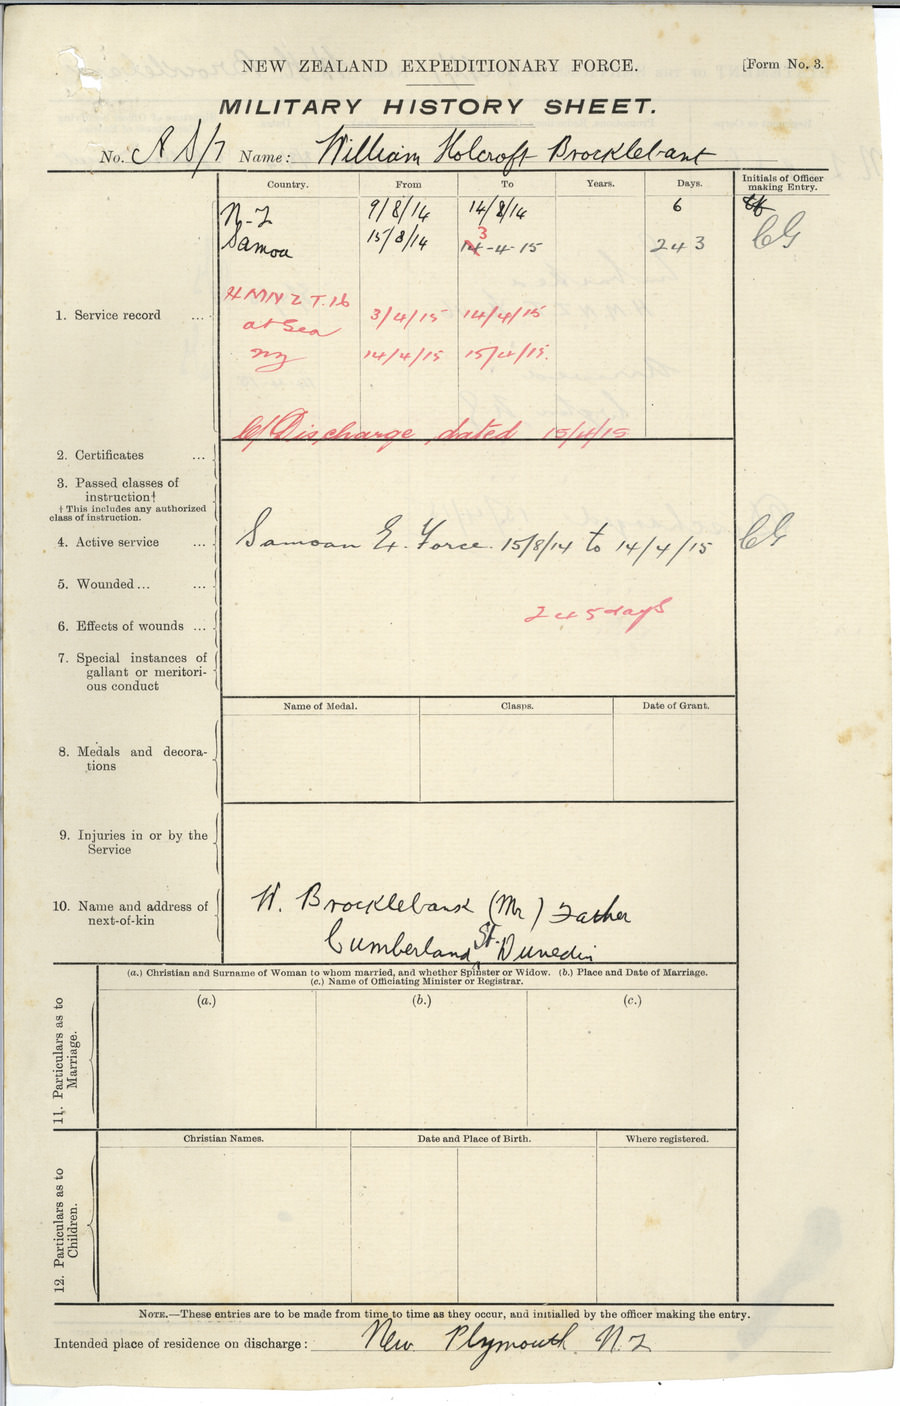 NEW ZEALAND EXPEDITIONARY FORCE. [Form No. 3.
MILITARY HISTORY SHEET.
No. A S/7 Name: William Holcroft Brocklebank
Country. From To Years. Days. Initials of Officer making Entry.
N-Z 9/8/14 14/8/14 6
Samoa 15/8/14 14-4-15 243 CG
3
HMNZT.16
at Sea 3/4/15 14/4/15
NZ 14/4/15 15/4/15.
1. Service record ...
Discharge dated 15/4/15
2. Certificates ...
3. Passed classes of
instruction†
† This includes any authorized
class of instruction.
4. Active service ... Samoan Ex. Force. 15/8/14 to 14/4/15 CG
5. Wounded ... ...
245 days
6. Effects of wounds ...
7. Special instances of
gallant or meritori-
ous conduct
Name of Medal. Clasps. Date of Grant.
8. Medals and decora-
tions
9. Injuries in or by the
Service
10. Name and address of
next-of-kin
W. Brocklebank (Mr) Father
Cumberland St. Dunedin
(a.) Christian and Surname of Woman to whom married, and whether Spinster or Widow. (b.) Place and Date of Marriage.
(c.) Name of Officiating Minister or Registrar.
11. Particulars as to
Marriage.
(a.) (b.) (c.)
Christian Names. Date and Place of Birth. Where registered.
12. Particulars as to
Children.
NOTE.—These entries are to be made from time to time as they occur, and initialled by the officer making the entry.
Intended place of residence on discharge: New Plymouth N.Z